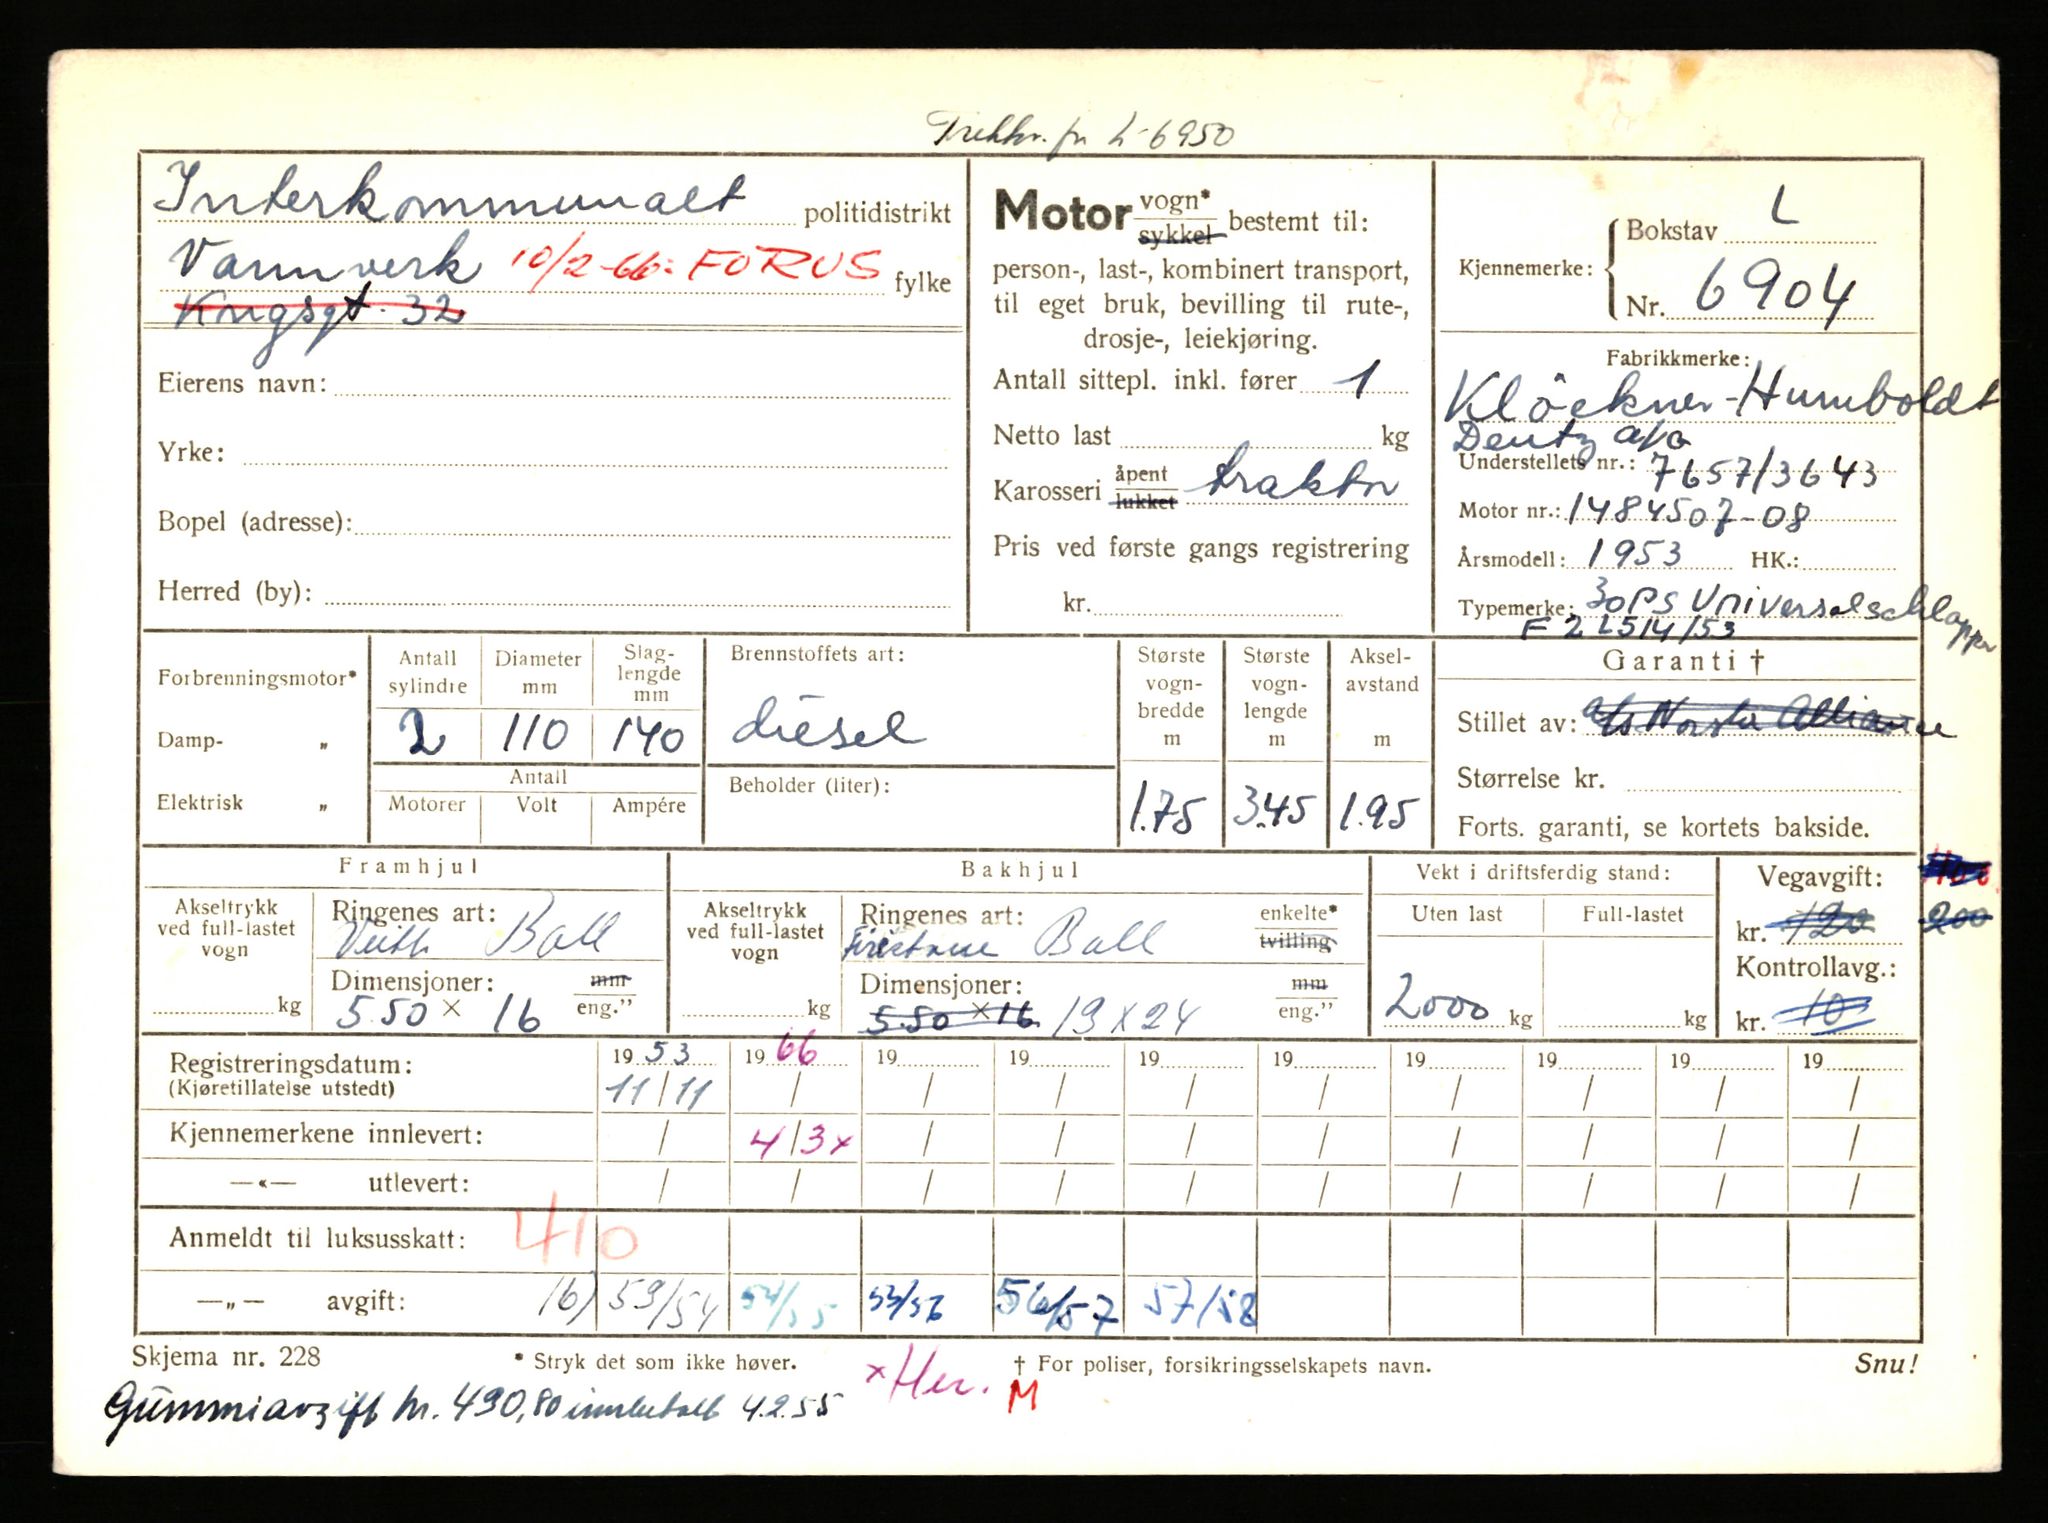 Trekkv. fr L-6950
Interkommunalt politidistrikt
Vannverk 10/2-66: FORUS fylke
Kngsgt. 32
Eierens navn:
Yrke:
Bopel (adresse):
Herred (by):
Motor vogn* sykkel bestemt til:
person-, last-, kombinert transport,
til eget bruk, bevilling til rute-,
drosje-, leiekjøring.
Antall sittepl. inkl. fører 1
Netto last kg
Karosseri åpent lukket traktor
Pris ved første gangs registrering
kr.
Kjennemerke: Bokstav L
Nr. 6904
Fabrikkmerke:
Klöckner-Humboldt
Deutz a/g
Understellets nr.: 7657/3643
Motor nr.: 1484507-08
Årsmodell: 1953 HK.:
Typemerke: 30PS Universalschlepper
F2L514/53
Forbrenningsmotor*
Damp- „
Elektrisk „
Antall sylindre
2
Diameter mm
110
Slaglengde mm
140
Antall
Motorer Volt Ampére
Brennstoffets art:
diesel
Beholder (liter):
Største vogn-bredde m
1.75
Største vogn-lengde m
3.45
Aksel-avstand m
1.95
Garanti †
Stillet av: a/s Norske Alliance
Størrelse kr.
Forts. garanti, se kortets bakside.
Framhjul
Akseltrykk ved full-lastet vogn
kg
Ringenes art:
Veith Ball
Dimensjoner: mm
5.50 x 16 eng."
Bakhjul
Akseltrykk ved full-lastet vogn
kg
Ringenes art: enkelte*
Firestone Ball tvilling
Dimensjoner: mm
5.50 x 16 13 x 24 eng."
Vekt i driftsferdig stand:
Uten last Full-lastet
2000 kg kg
Vegavgift:
kr. 120 200
Kontrollavg.:
kr. 10
Registreringsdatum: 19 53 19 66 19 19 19 19 19 19 19 19
(Kjøretillatelse utstedt) 11/11 / / / / / / / / /
Kjennemerkene innlevert: / 4/3x / / / / / / / /
—«— utlevert: / / / / / / / / / /
Anmeldt til luksusskatt: 410
—„— avgift: 16) 53/54 54/55 55/56 56/57 57/58
Skjema nr. 228 * Stryk det som ikke høver. † For poliser, forsikringsselskapets navn. Snu!
x Her. M
Gummiavgift kr. 490,80 innbetalt 4.2.55